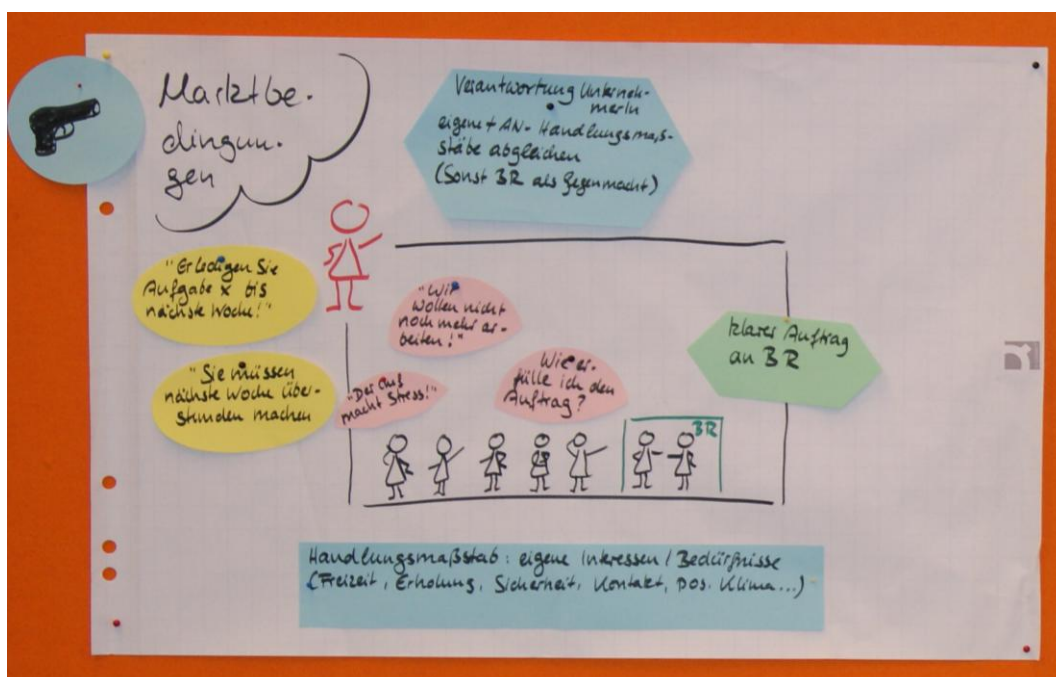 Marktbe-
dingun-
gen
Verantwortung Unterneh-
merIn
eigene + AN- Handlungsmaß-
stäbe abgleichen
(Sonst BR als Gegenmacht)
"Erledigen Sie
Aufgabe x bis
nächste Woche!"
"Sie müssen
nächste Woche Über-
stunden machen
"Wir
wollen nicht
noch mehr ar-
beiten!"
"Der Chef
macht Stress!"
Wie er-
fülle ich den
Auftrag?
klarer Auftrag
an BR
BR
Handlungsmaßstab: eigene Interessen / Bedürfnisse
(Freizeit, Erholung, Sicherheit, Kontakt, pos. Klima...)